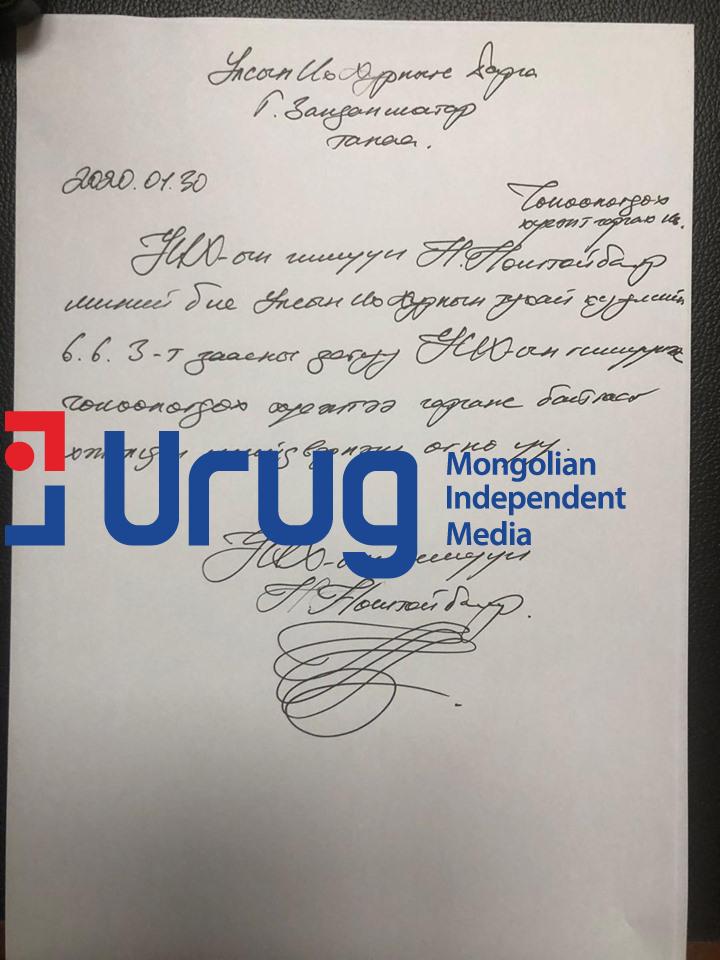 Улсын Их Хурлын дарга
Г. Занданшатар
танаа.
2020.01.30
Чөлөөлөгдөх
хүсэлт гаргах нь.
УИХ-ын гишүүн Н.Номтойбаяр
миний бие Улсын Их Хурлын тухай хуулийн
6.6.3-т заасны дагуу УИХ-ын гишүүнээс
чөлөөлөгдөх хүсэлтээ гаргаж байгааг
өгнө үү.
Urug
Mongolian
Independent
Media
УИХ-ын гишүүн
Н.Номтойбаяр.